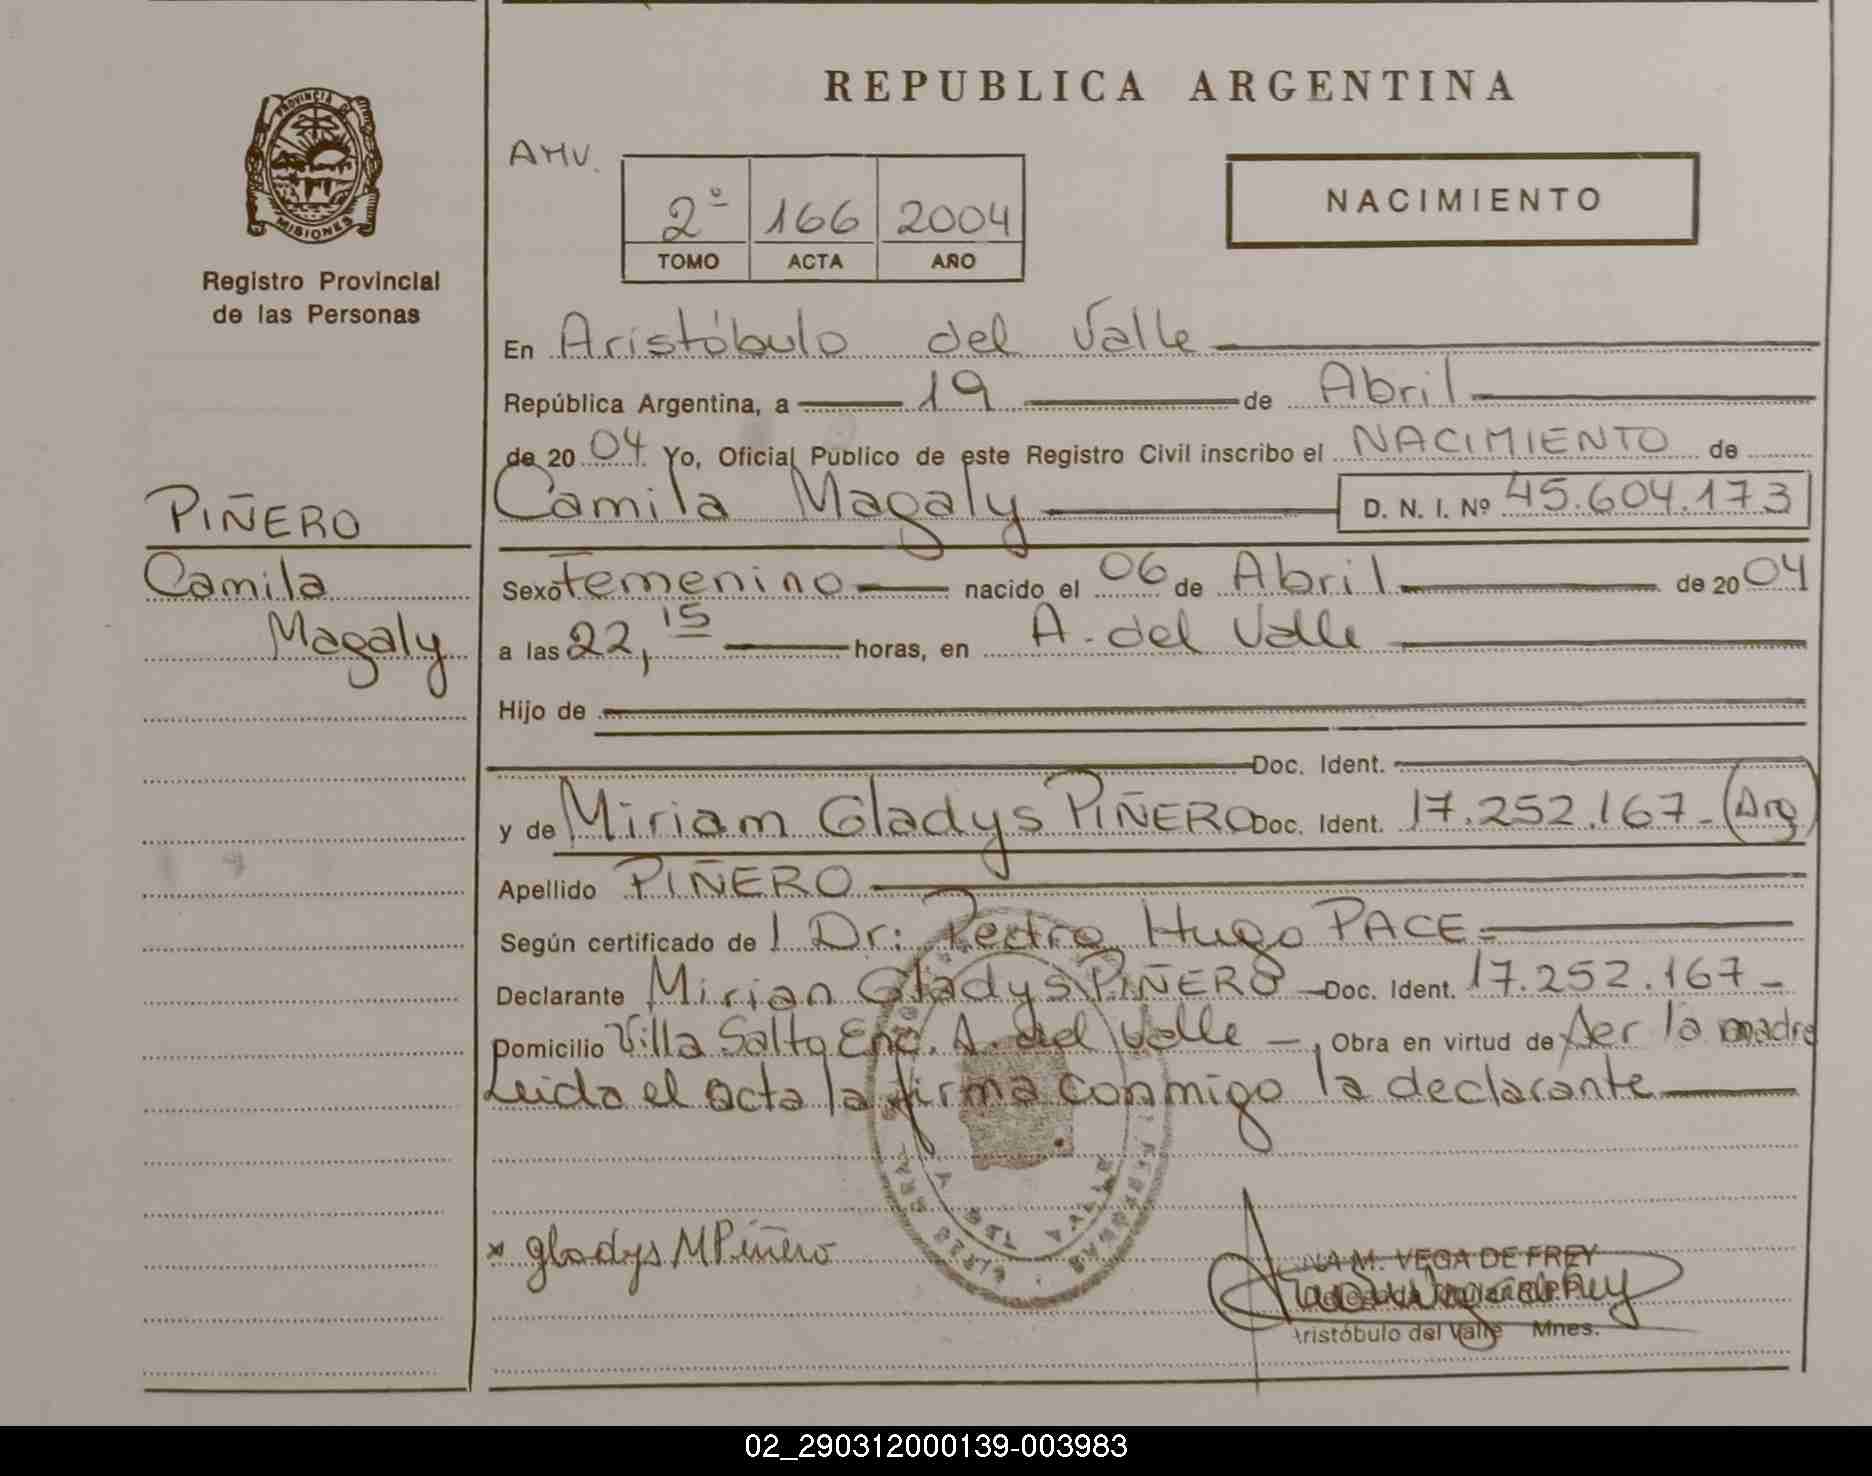 REPUBLICA ARGENTINA
PROVINCIA DE
MISIONES
Registro Provincial
de las Personas
AMV.
2º 166 2004
TOMO ACTA AÑO
NACIMIENTO
En Aristóbulo del Valle
República Argentina, a 19 de Abril
de 20 04 Yo, Oficial Público de este Registro Civil inscribo el NACIMIENTO de
Camila Magaly D. N. I. Nº 45.604.173
PIÑERO
Camila
Magaly
Sexo Femenino nacido el 06 de Abril de 20 04
a las 22, 15 horas, en A. del Valle
Hijo de
Doc. Ident.
y de Miriam Gladys PIÑERO Doc. Ident. 17.252.167- (Arg)
Apellido PIÑERO
Según certificado de l Dr: Pedro Hugo PACE-
Declarante Mirian Gladys PIÑERO - Doc. Ident. 17.252.167-
Domicilio Villa Salto Enc. A. del Valle - , Obra en virtud de ser la madre
Leida el acta la firma conmigo la declarante
x gladys M Piñero
NA M. VEGA DE FREY
Aristóbulo del Valle Mnes.
02_290312000139-003983